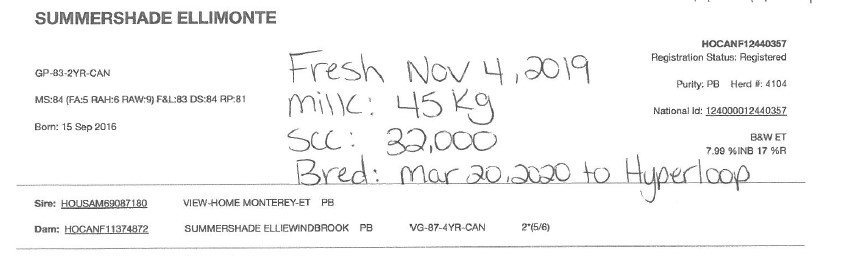 SUMMERSHADE ELLIMONTE
HOCANF12440357
Registration Status: Registered
GP-83-2YR-CAN
Fresh Nov 4, 2019
Purity: PB Herd #: 4104
MS:84 (FA:5 RAH:6 RAW:9) F&L:83 DS:84 RP:81
Milk: 45 Kg
National Id: 124000012440357
Born: 15 Sep 2016
SCC: 32,000
B&W ET
7.99 %INB 17 %R
Bred: Mar 20, 2020 to Hyperloop
Sire: HOUSAM69087180 VIEW-HOME MONTEREY-ET PB
Dam: HOCANF11374872 SUMMERSHADE ELLIEWINDBROOK PB VG-87-4YR-CAN 2*(5/6)